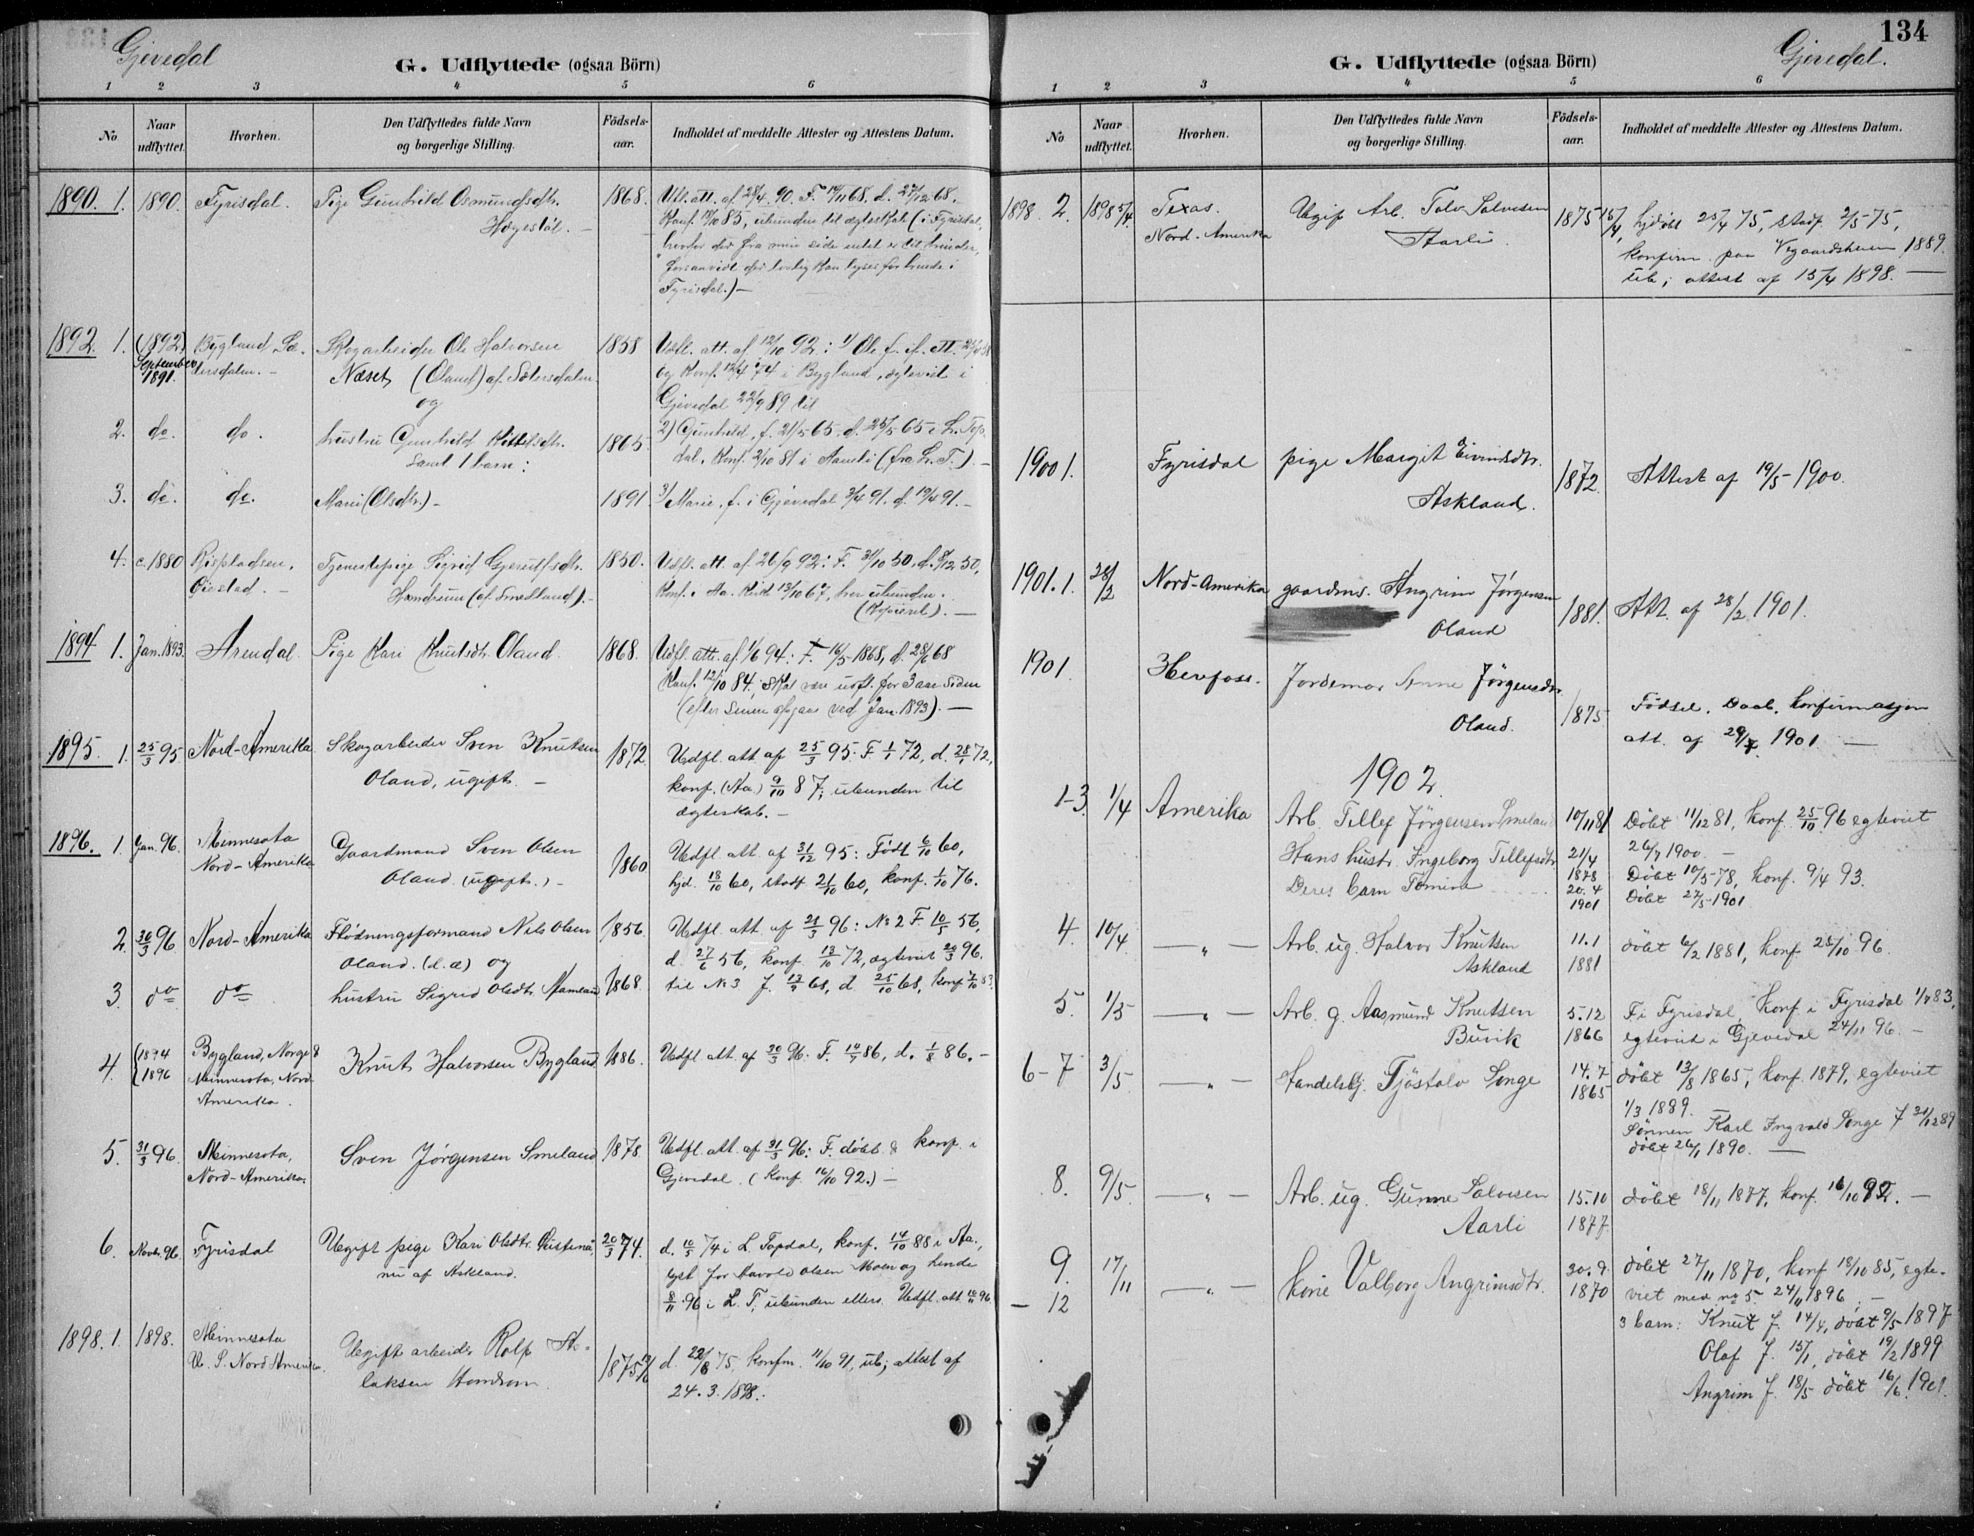 Gjevedal
G. Udflyttede (ogsaa Börn)
1 2 3 4 5 6
No
Naar udflyttet.
Hvorhen.
Den Udflyttedes fulde Navn og borgerlige Stilling.
Födsels-aar.
Indholdet af meddelte Attester og Attestens Datum.
1890. 1. 1890. Fyrisdal. Pige Gunhild Osmundsdtr. 1868. Udfl. att. af 28/4 90. F. 14/11 68, d. 27/12 68,
Konf. 18/10 85, ubunden til ægteskab (i Fyrisdal,
hvorfor der fra min side intet er til hinder,
forsaavidt der lovlig kan lyses for hende i
Fyrisdal.) —
1892. 1. (1892) September 1891. Bygland, Sætersdalen. — Skogarbeider Ole Halvorsen 1858 Udfl. att. af 12/10 92: 1) Ole f. if. att.
Næset (Oland) af Sætersdalen og Konf. 12/4 74 i Bygland, ægteviet i
og Gjevedal 22/9 89 til
2. do. do. hustru Gunhild Kittilsdtr. 1865. 2) Gunhild, f. 21/5 65, d. 25/5 65 i L. Top-
samt 1 barn: dal, Konf. 2/10 81 i Aamli (fra L. T.). —
3. do. do. Marie (Olsdtr.) — 1891. 3) Marie, f. i Gjevedal 3/4 91, d. 19/4 91. —
4. c. 1880 Øiestad. — Tjenestepige Sigrid 1850. Udfl. att. af 26/9 92: F. 31/10 50, d. 8/12 50,
(af Smeland). — Konf. i Aa. Kirke 13/10 67, her ubunden.
1894 1. Jan. 1893. Arendal. Pige Kari Knutsdtr. Oland. 1868. Udfl. att. af 1/6 94: F. 16/5 1868, d. 28/6 68
Konf. 12/10 84; Skal være udfl. for 3 aar siden
(efter senere opgave ved Jan. 1893). —
1895. 1. 25/3 95 Nord-Amerika Skogarbeider Sven Knutsen 1872. Udfl. att. af 25/3 95. F. 1/1 72, d. 28/1 72,
Oland, ugift. — konf. (Aa.) 9/10 87; ubunden til
ægteskab. —
1896. 1. Jan. 96. Minnesota Nord-Amerika Gaardmand Sven Olsen 1860 Udfl. att. af 31/12 95: Født 6/10 60,
Oland. (ugift.) — hjd. 18/10 60, stadf. 21/10 60, konf. 1/10 76.
2. 30/3 96 Nord-Amerika Flødningsformand Nils Olsen 1856. Udfl. att. af 21/3 96: No 2 F. 10/5 56,
Oland. (d. æ) og d. 27/6 56, konf. 13/10 72, ægteviet 29/3 96.
3. do do hustru Sigrid Olsdtr. 1868. til No 3 f. 13/9 68, d. 25/10 68, konf. 7/10 83.
4. (1894 1896 Bygland, Norge & Minnesota, Nord-Amerika. Knut Halvorsen Bygland 1886. Udfl. att. af 30/3 96: F. 14/7 86, d. 1/8 86. —
5. 31/3 96 Minnesota, Nord-Amerika. Sven Jørgensen Smeland 1878. Udfl. att. af 31/3 96: F. døbt & konf. i
Gjevedal. (Konf. 16/10 92.) —
6. Novbr. 96. Fyrisdal Ugift pige Kari Olsdtr. 20/3 74. d. 10/5 74 i L. Topdal, konf. 14/10 88 i Aa.,
nu af Askland. lyst for Havold Olsen Moen og hende
8/11 96 i L. T, ubunden ellers. Udfl. att. 16/11 96.
1898. 1. 1898. Minnesota U. S. Nord Amerika. Ugift arbeider Rolf As- 1875 d. 22/8 75, konfm. 11/10 91, ub; attest af
laksen Homdrom. 24. 3. 1898.
134
Gjevedal.
G. Udflyttede (ogsaa Börn)
1 2 3 4 5 6
No
Naar udflyttet.
Hvorhen.
Den Udflyttedes fulde Navn og borgerlige Stilling.
Födsels-aar.
Indholdet af meddelte Attester og Attestens Datum.
1898. 2. 1898 5/4. Texas. Nord-Amerika Ugift Arb. Tolv Salvesen 1875 15/4, hjdøbt 25/4 75, stadf. 2/5 75,
Aarli. konfirm. paa Vegaardsheien 1889.
ub; attest af 15/4 1898. —
1900 1. Fyrisdal pige Margit Eivindsdtr. 1872. Attest af 19/5 1900.
Askland.
1901. 1. 28/2 Nord-Amerika gaardms. Angrim Jørgensen 1881. Att. af 28/2 1901.
Oland
1901 Herefoss. Jordemor Anne Jørgensdtr. 1875 Fødsel. Daab. Konfirmasjon
Oland. att. af 29/7 1901. —
1902.
1-3. 1/4 Amerika Arb. Tellef Jörgensen Smeland 10/11 81 Döbt 11/12 81, konf. 25/10 96 egteviet
26/7 1900. —
Hans hustr. Ingeborg Tellefsdtr 21/4 1878 Döbt 10/5 78, konf. 9/4 93.
Deres barn Tomine 20. 4 1901 Döbt 27/5 1901
4. 10/4 — „ — Arb. ug. Halvor Knutsen 11. 1 1881 döbt 6/2 1881, konf. 25/10 96.
Askland
5. 1/5 — „ — Arb. g. Aasmund Knutsen 5. 12 1866 F. i Fyrisdal, konf. i Fyrisdal 1/7 83,
Buvik egteviet i Gjevedal 24/11 96. —
6-7 3/5 — „ — Handelsbj. Tjöstolv Songe 14. 7 1865 döbt 13/8 1865, konf. 1879, egteviet
1/3 1889.
Sönnen Karl Ingvald Songe f. 31/12 89
döbt 26/1 1890. —
8. 9/5 — „ — Arb. ug. Gunne Salvesen 15. 10 1877 döbt 18/11 1877, konf. 16/10 92. —
Aarli
9. — 12 17/11 — „ — Kone Valborg Angrimsdtr. 30. 9. 1870 döbt 27/11 1870, konf. 18/10 85, egte-
viet med no 5. 24/11 1896. —
3 barn: Knut f. 14/4, döbt 9/5 1897
Olaf f. 15/1, döbt 19/2 1899
Angrim f. 18/5 döbt 16/6 1901.